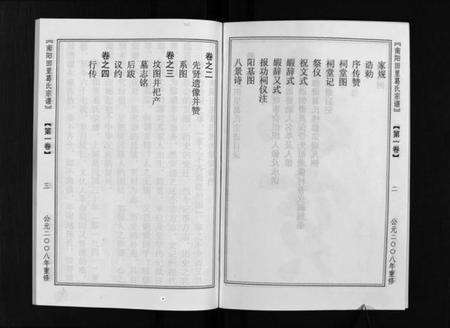 《南阳田里葛氏宗谱》
【第一卷】
二
公元二〇〇八年重修
家规
诰勅
序传赞
祠堂图
祠堂记
祭仪
祝文式
嘏辞式
嘏辞又式
报功祠仪注
阳基图
八景诗
卷之二
先贤遗像并赞
系图
卷之三
坟图并祀产
墓志铭
后跋
议约
卷之四
行传
《南阳田里葛氏宗谱》
【第一卷】
三
公元二〇〇八年重修